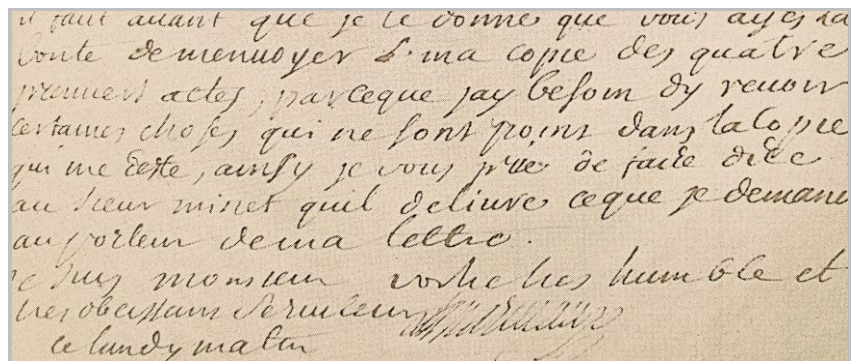 il faut auant que je le donne que vous ayés la
bonté de menuoyer ma copie des quatre
premiers actes, parceque jay besoin dy reuoir
certaines choses qui ne sont point dans la Copie
qui me reste, ainsy je vous prie de faire dire
au sieur minet quil deliure ceque je demande
au porteur dema lettre.
je suis monsieur vostre tres humble et
tres obeissant seruiteur
ce lundy matin